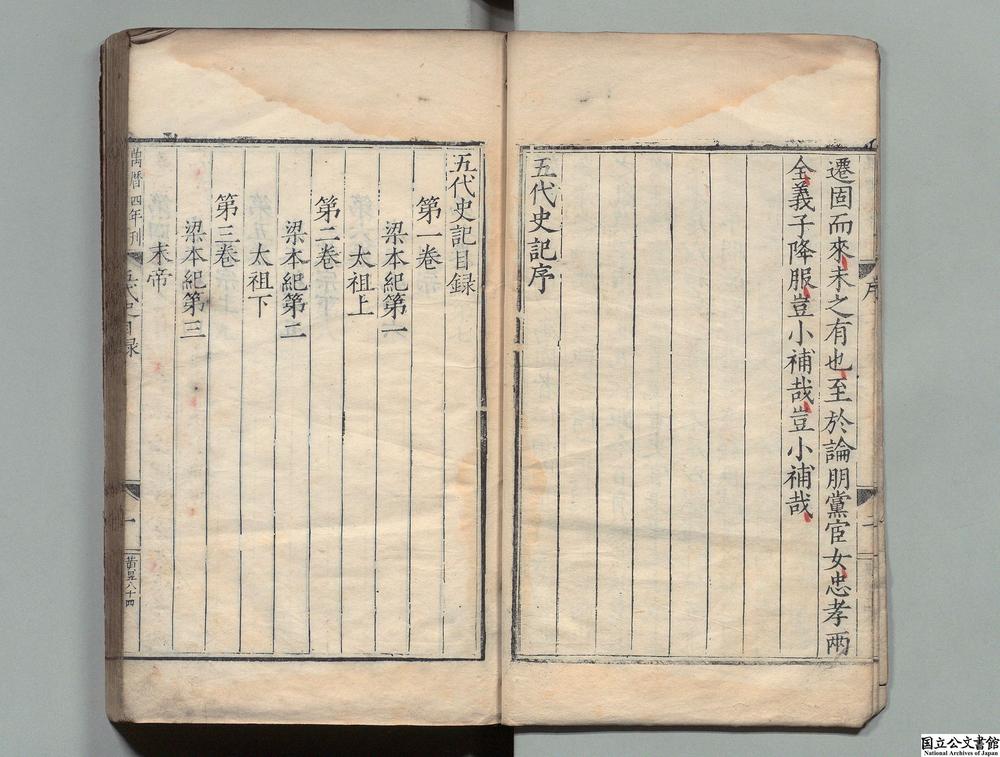 遷固而來未之有也至於論朋黨宦女忠孝兩
全義子降服豈小補哉豈小補哉
五代史記序
序
二
五代史記目録
第一卷
梁本紀第一
太祖上
第二卷
梁本紀第二
太祖下
第三卷
梁本紀第三
末帝
萬曆四年刊
一
国立公文書館
National Archives of Japan